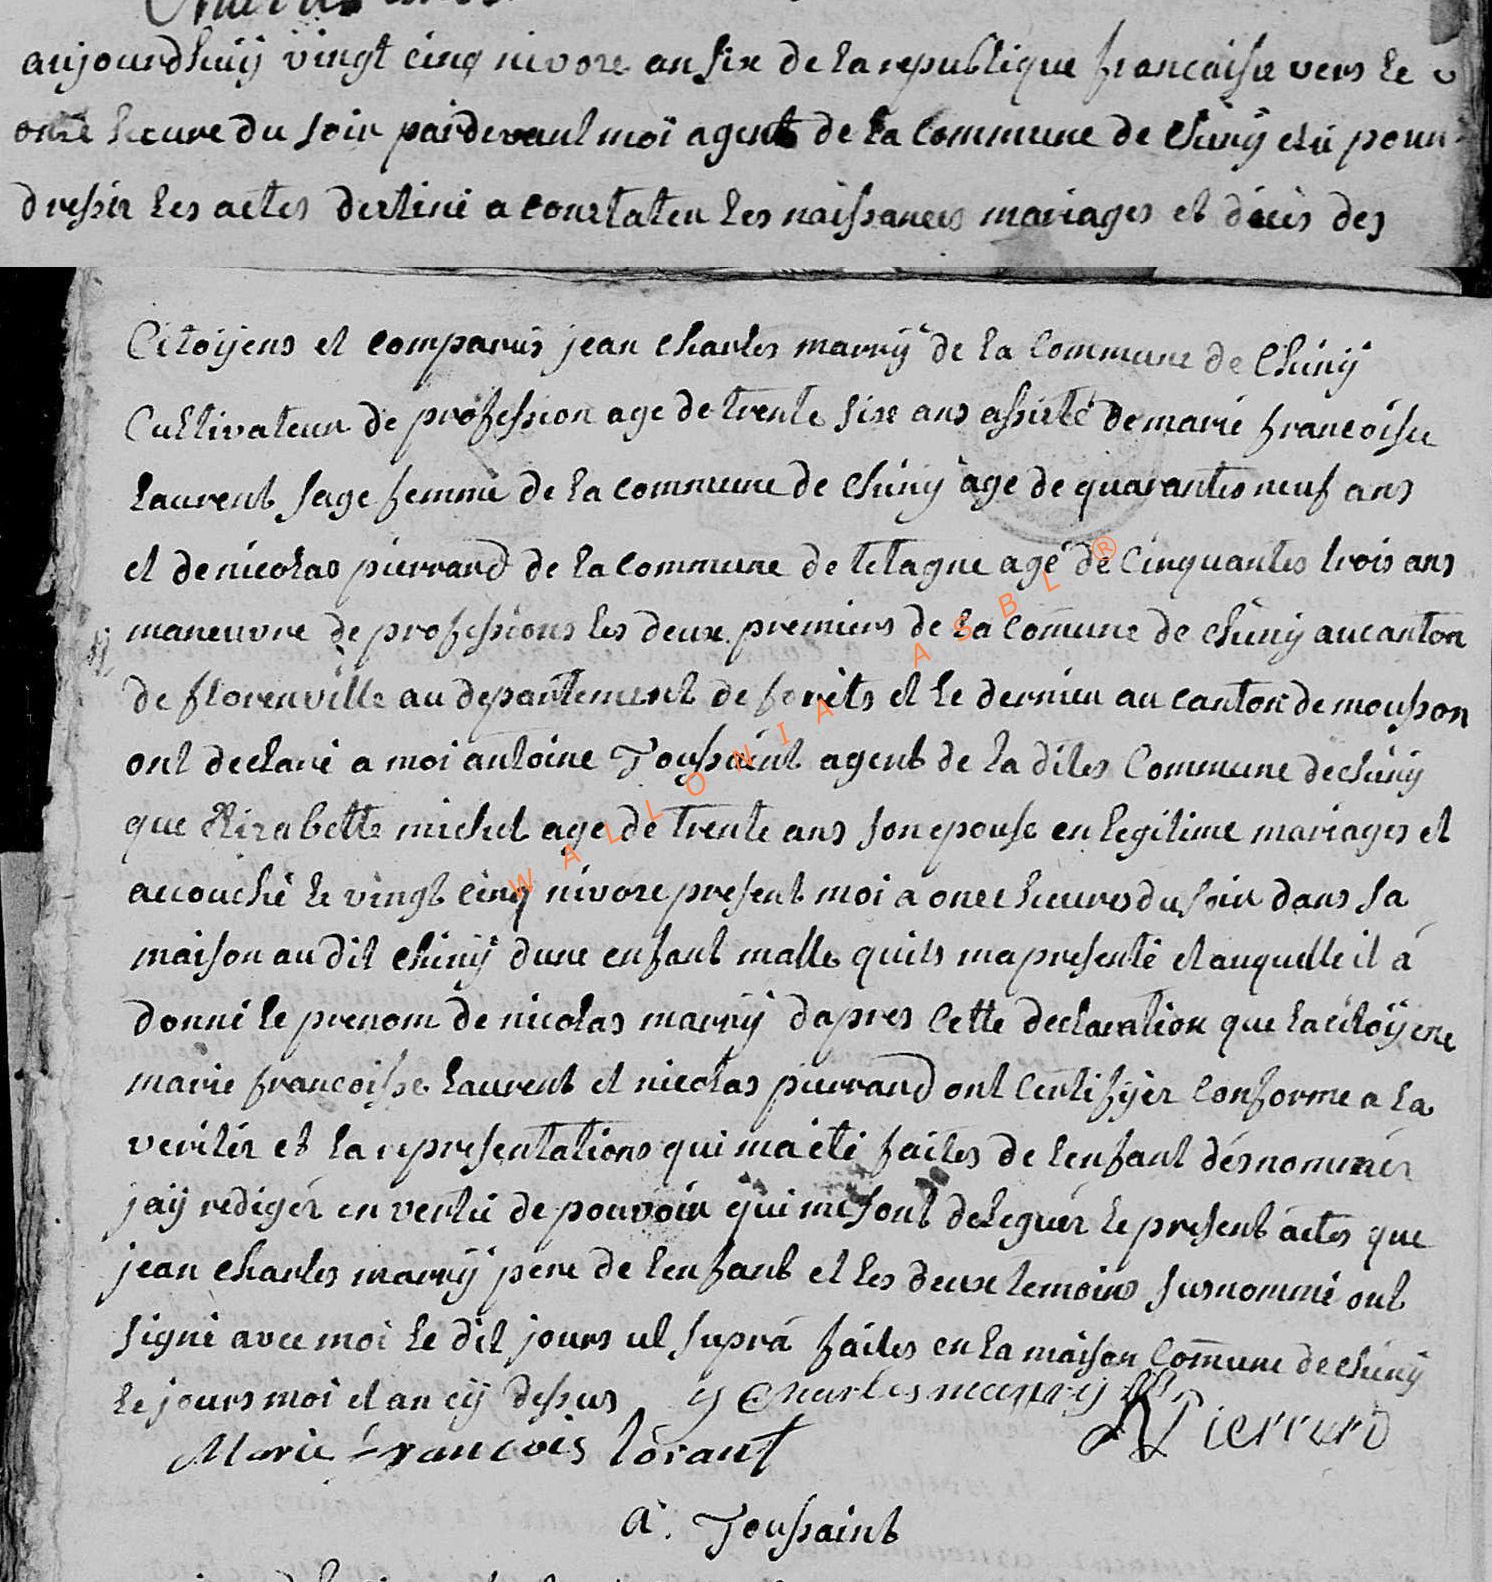 aujourdhuij vingt cinq nivore an six de la republique francaise vers le
onze heeure du soir pardevant moi agent de la Commune de Chinij élu pour
dresser les actes destiné a constater les naissances mariages et décès des
Citoijens et comparus jean Charles marrij de la Commune de Chinij
Cultivateur de profession age de trente six ans assisté de marie francoise
Laurent sage femme de la commune de Chinij age de quarantes neuf ans
et de nicolas pierrard de la commune de tetagne agé de Cinquantes trois ans
maneuvre de professions les deux premiers de la Comune de Chinij au canton
de florenville au departement de forêts et le dernier au canton de mousson
ont declaré a moi antoine Toussaint agent de la dites Commune de chinij
que Elizabette michel age de trente ans son epouse en legitime mariages et
accouché le vingt cinq nivore present moi a onze heeures du soir dans sa
maison au dit Chinij dune enfant malle quils ma presenté et auquelle il à
donné le prenom de nicolas marrij dapres Cette declaration que la citoijene
marie francoise Laurent et nicolas pierrard ont Certifijer Conforme a la
veriter et la representations qui ma été faites de lenfant dénommér
jaij rediger en vertu de pouvoir qui me sont deleguer le present actes que
jean Charles marrij pere de lenfant et les deux temoins susnommé ont
signé avec moi le dit jours ut suprà faites en la maison Comune de chinij
le jours moi et an cij dessus
Marie francois lorant
N Pierrard
a. Toussaint
W A L L O N I A A S B L ®